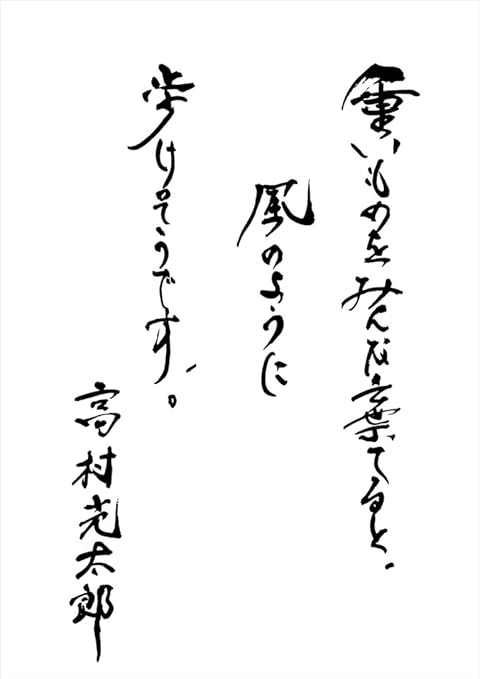 重いものをみんな棄てると、
風のように
歩けそうです。
高村光太郎